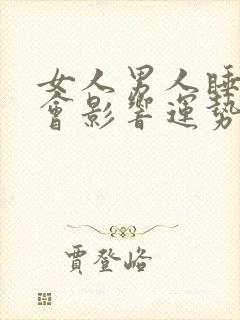 女人男人睡
會影響運勢
賈登峪